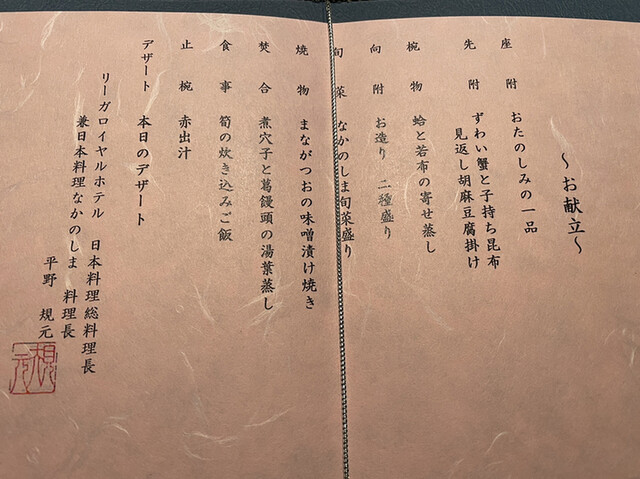 ～お献立～
座附 おたのしみの一品
先附 ずわい蟹と子持ち昆布
見返し胡麻豆腐掛け
椀物 蛤と若布の寄せ蒸し
向附 お造り 二種盛り
旬菜 なかのしま旬菜盛り
焼物 まながつおの味噌漬け焼き
焚合 煮穴子と葛饅頭の湯葉蒸し
食事 筍の炊き込みご飯
止椀 赤出汁
デザート 本日のデザート
リーガロイヤルホテル 日本料理総料理長
兼日本料理なかのしま 料理長
平野 規元
規元